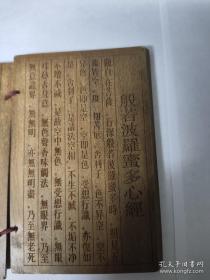 般若波羅蜜多心經
觀自在菩薩 行深般若波羅蜜多時 照見五
蘊皆空 度一切苦厄 舍利子 色不異空 空不
異色 色即是空 空即是色 受想行識 亦復如
是 舍利子 是諸法空相 不生不滅 不垢不淨
不增不減 是故空中無色 無受想行識 無眼
耳鼻舌身意 無色聲香味觸法 無眼界 乃至
無意識界 無無明 亦無無明盡 乃至無老死